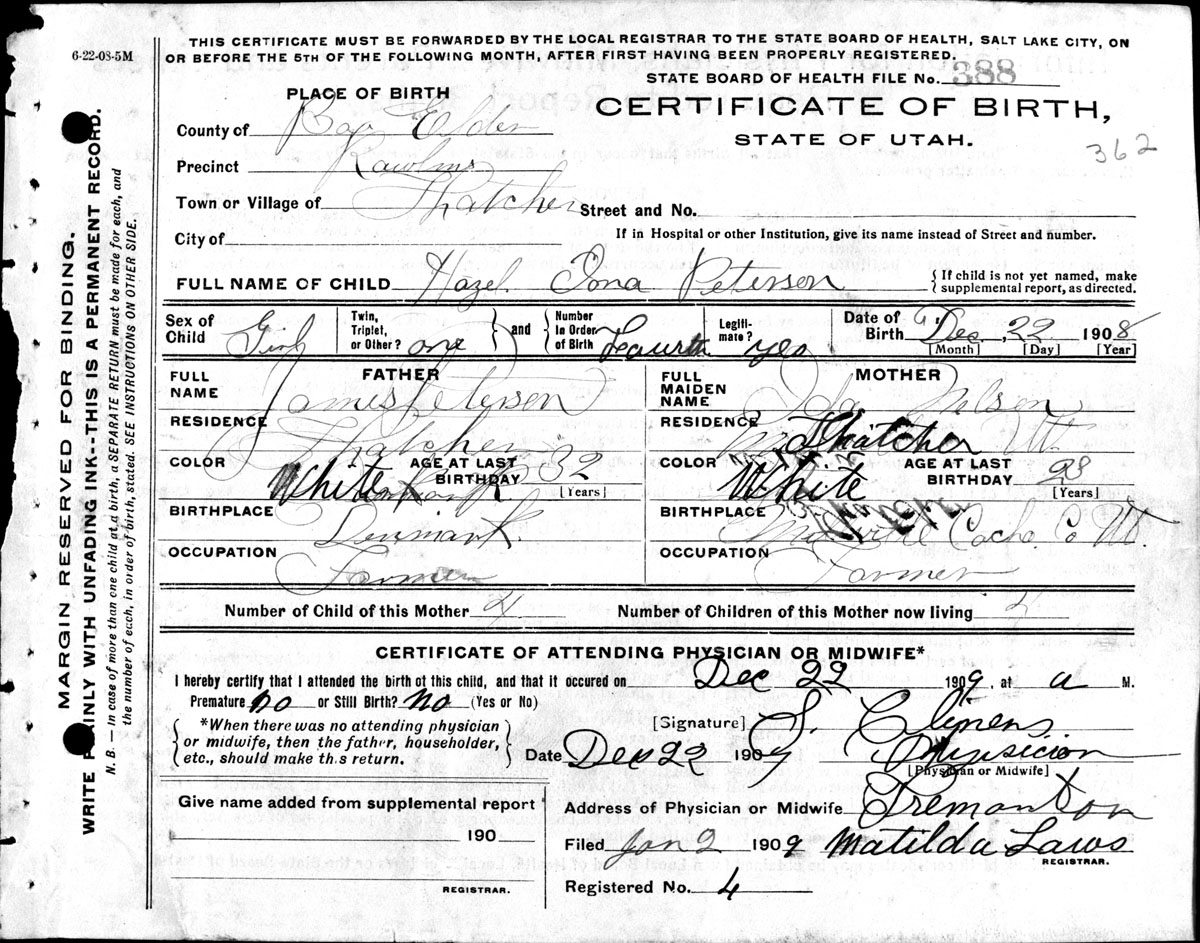 6-22-08-5M
THIS CERTIFICATE MUST BE FORWARDED BY THE LOCAL REGISTRAR TO THE STATE BOARD OF HEALTH, SALT LAKE CITY, ON
OR BEFORE THE 5TH OF THE FOLLOWING MONTH, AFTER FIRST HAVING BEEN PROPERLY REGISTERED.
STATE BOARD OF HEALTH FILE No. 388
PLACE OF BIRTH
CERTIFICATE OF BIRTH,
STATE OF UTAH.
362
County of Box Elder
Precinct Rawlins
Town or Village of Thatcher Street and No.
City of If in Hospital or other Institution, give its name instead of Street and number.
FULL NAME OF CHILD Hazel Iona Peterson { If child is not yet named, make supplemental report, as directed.
Sex of Child Girl Twin, Triplet, or Other? one } and { Number in Order of Birth Fourth Legitimate? yes Date of Birth Dec. 22 1908
[Month] [Day] [Year]
FATHER MOTHER
FULL NAME James Peterson FULL MAIDEN NAME Ida Nelson
RESIDENCE Thatcher RESIDENCE Thatcher Ut.
COLOR White AGE AT LAST BIRTHDAY 32 [Years] COLOR White AGE AT LAST BIRTHDAY 28 [Years]
BIRTHPLACE Denmark BIRTHPLACE Cache Co Ut.
OCCUPATION Farmer OCCUPATION Farmer
Number of Child of this Mother 4 Number of Children of this Mother now living 4
CERTIFICATE OF ATTENDING PHYSICIAN OR MIDWIFE*
I hereby certify that I attended the birth of this child, and that it occured on Dec 22 1909, at a M.
Premature no or Still Birth? No (Yes or No)
*When there was no attending physician
or midwife, then the father, householder,
etc., should make this return.
[Signature] S. Clemens
Date Dec 22 190 Physicion
[Physician or Midwife]
Give name added from supplemental report
190
REGISTRAR.
Address of Physician or Midwife Tremonton
Filed Jan 2 1909 Matilda Laws
REGISTRAR.
Registered No. 4
MARGIN RESERVED FOR BINDING.
WRITE PLAINLY WITH UNFADING INK--THIS IS A PERMANENT RECORD.
N. B.—In case of more than one child at a birth, a SEPARATE RETURN must be made for each, and
the number of each, in order of birth, stated. SEE INSTRUCTIONS ON OTHER SIDE.